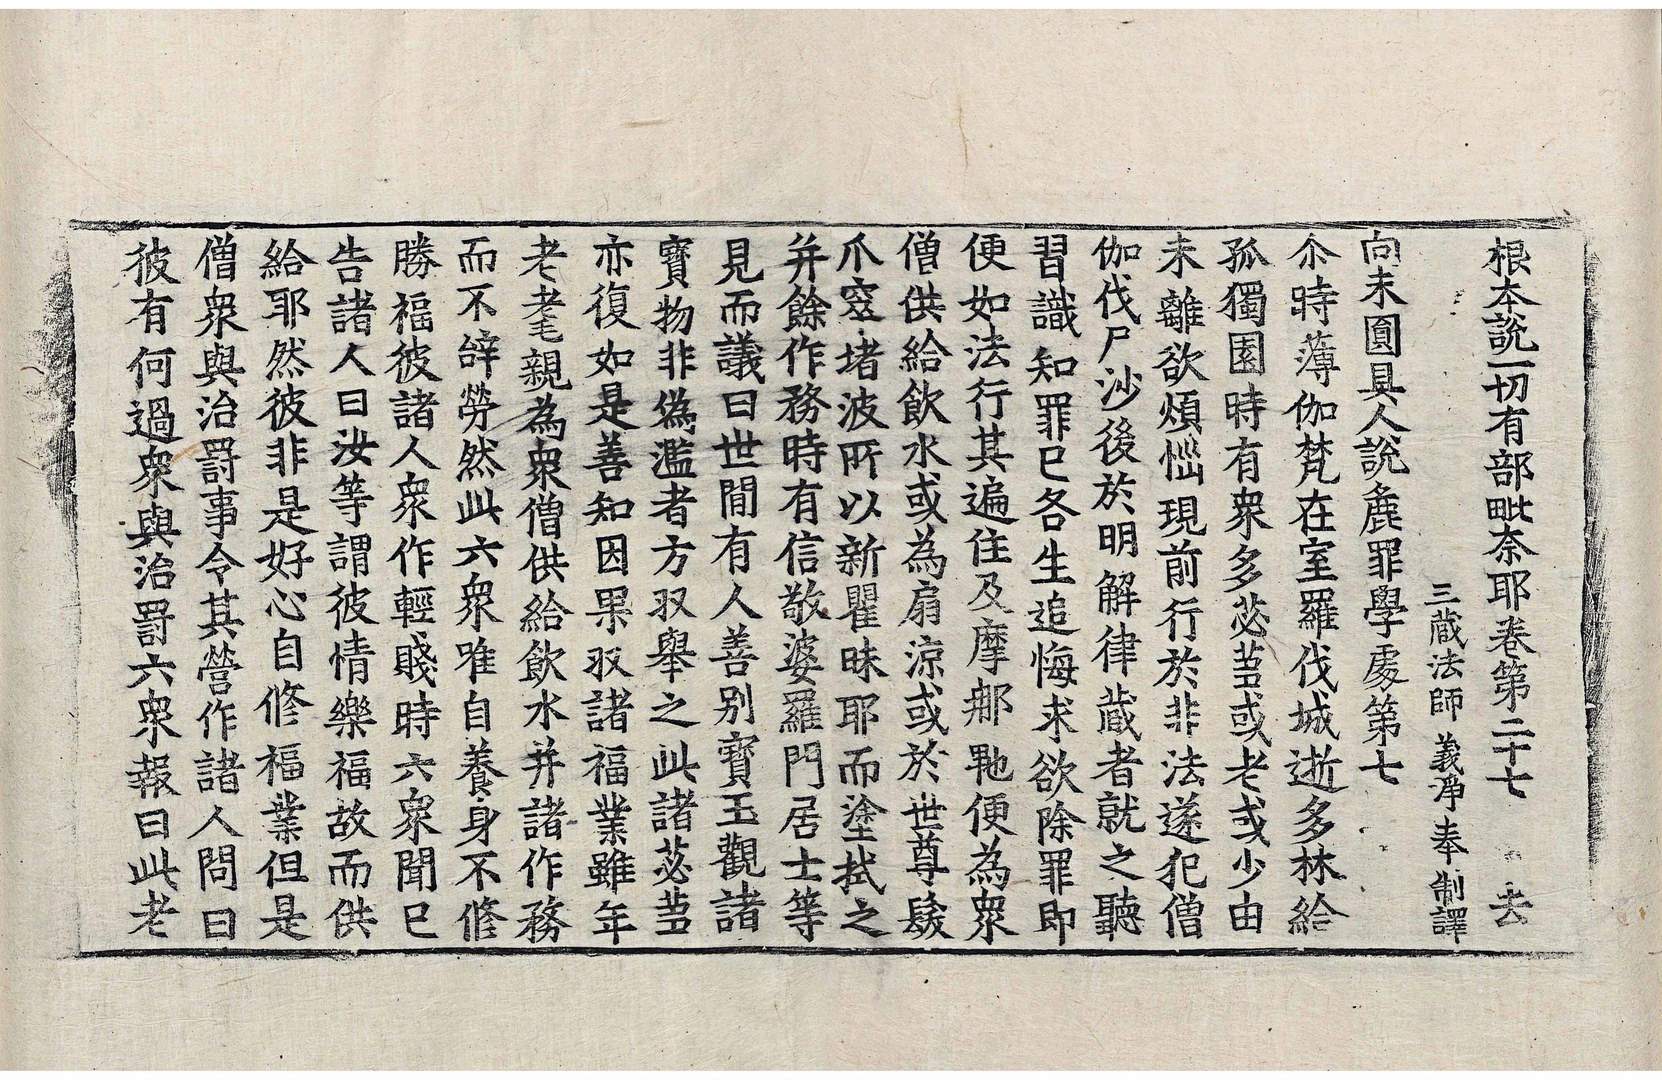 根本說一切有部毗奈耶卷第二十七 去
三藏法師 義淨奉 制譯
向未圓具人說麁罪學處第七
尒時薄伽梵在室羅伐城逝多林給
孤獨園時有衆多苾芻或老或少由
未離欲煩惱現前行於非法遂犯僧
伽伐尸沙後於明解律藏者就之聽
習識知罪已各生追悔求欲除罪即
便如法行其遍住及摩那𭅖便為衆
僧供給飲水或為扇涼或於世尊髮
爪窣堵波所以新瞿昧耶而塗拭之
并餘作務時有信敬婆羅門居士等
見而議曰世間有人善別寶玉觀諸
寶物非偽濫者方収舉之此諸苾芻
亦復如是善知因果収諸福業雖年
老耄親為衆僧供給飲水并諸作務
而不辭勞然此六衆唯自養身不修
勝福彼諸人衆作輕賤時六衆聞已
告諸人曰汝等謂彼情樂福故而供
給耶然彼非是好心自修福業但是
僧衆與治罸事令其營作諸人問曰
彼有何過衆與治罸六衆報曰此老